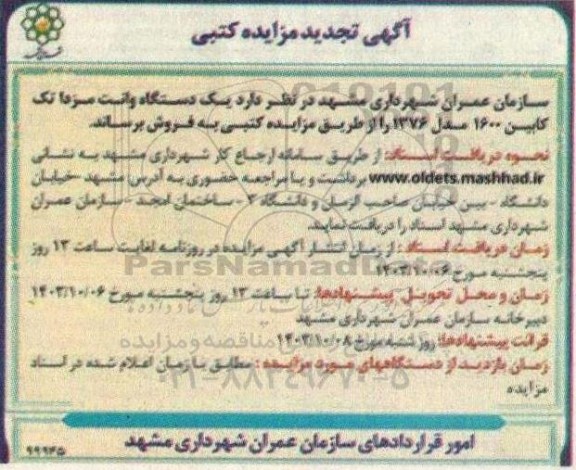 آگهی تجدید مزایده کتبی
سازمان عمران شهرداری مشهد در نظر دارد یک دستگاه وانت مزدا تک
کابین ۱۶۰۰ مدل ۱۳۷۶ را از طریق مزایده کتبی به فروش برساند.
نحوه دریافت اسناد: از طریق سامانه ارجاع کار شهرداری مشهد به نشانی
www.oldets.mashhad.ir برداشت و یا مراجعه حضوری به آدرس: مشهد - خیابان
دانشگاه - بین خیابان صاحب الزمان و دانشگاه ۳ - ساختمان امجد - سازمان عمران
شهرداری مشهد اسناد را دریافت نمایند.
زمان دریافت اسناد: از زمان انتشار آگهی مزایده در روزنامه لغایت ساعت ۱۳ روز
پنجشنبه مورخ ۱۴۰۳/۱۰/۰۶
زمان و محل تحویل پیشنهادها: تا ساعت ۱۳ روز پنجشنبه مورخ ۱۴۰۳/۱۰/۰۶
دبیرخانه سازمان عمران شهرداری مشهد
قرائت پیشنهادها: روز شنبه مورخ ۱۴۰۳/۱۰/۰۸
زمان بازدید از دستگاههای مورد مزایده: مطابق با زمان اعلام شده در اسناد
مزایده
امور قراردادهای سازمان عمران شهرداری مشهد
۹۹۹۴۵
ParsNamadData
۰۲۱-۸۸۳۴۹۶۷۰-۵